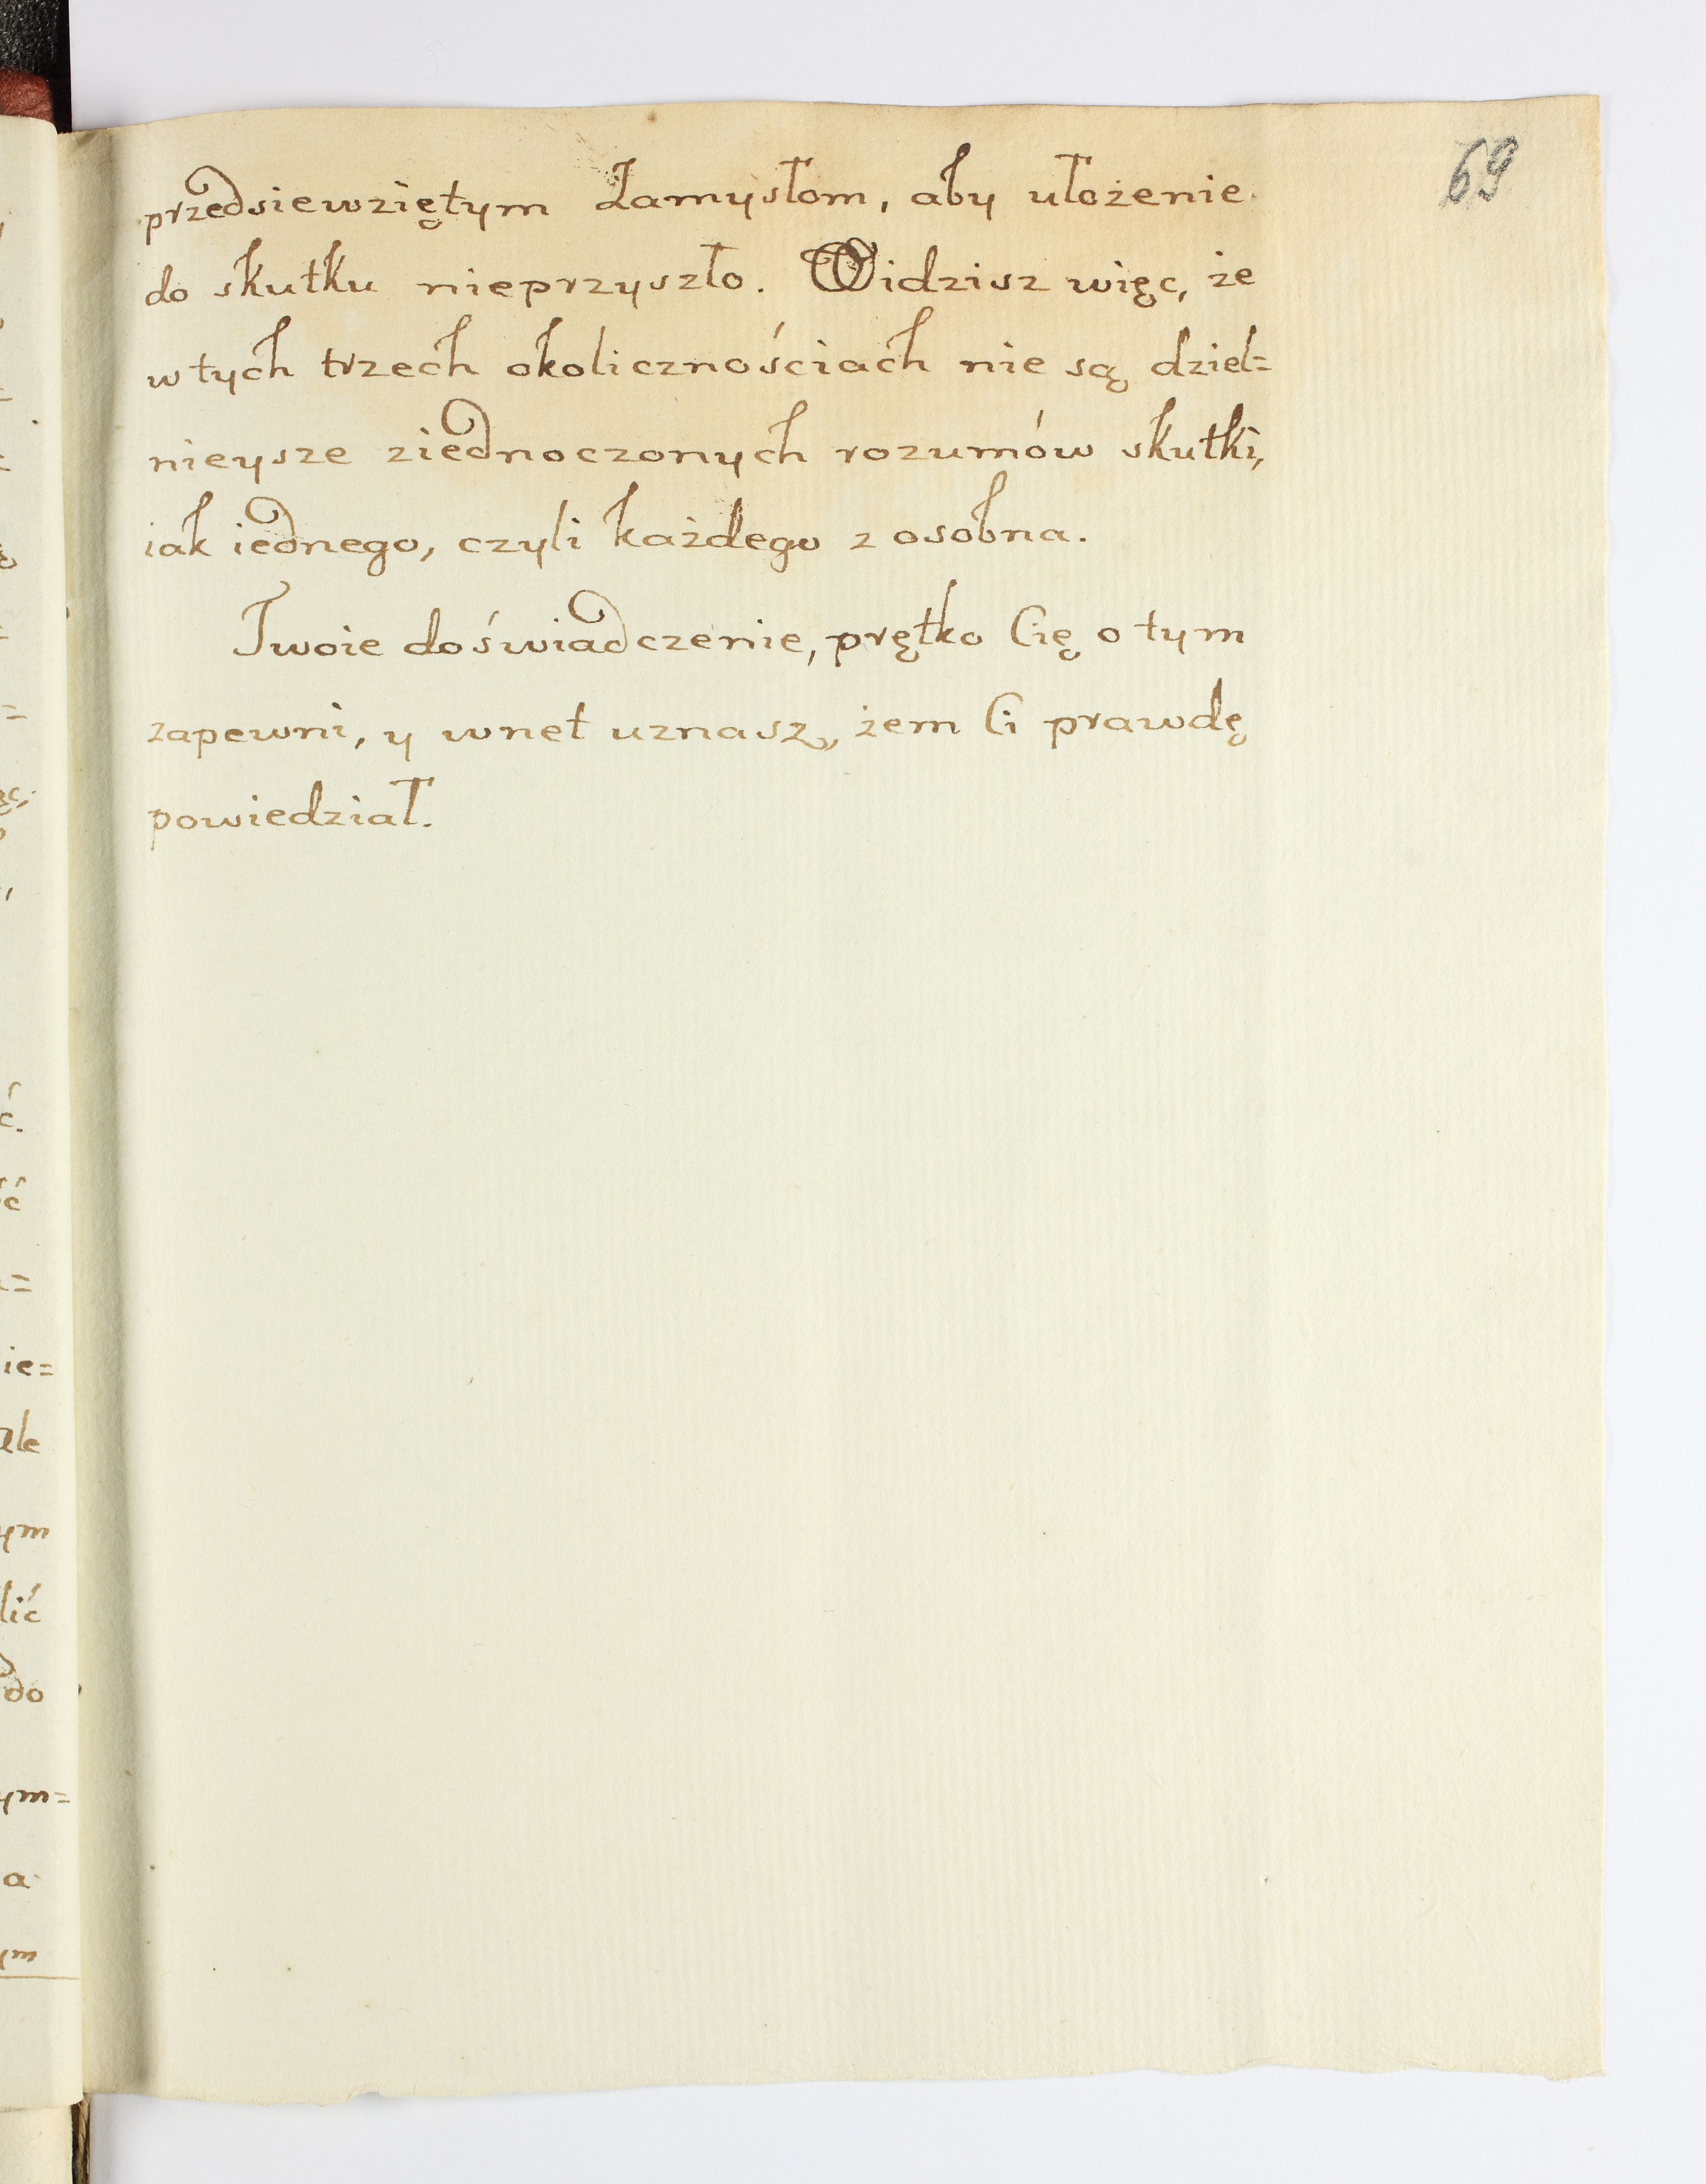 69
przedsiewziętym Zamysłom, aby ułożenie
do skutku nieprzyszło. Widzisz więc, że
w tych trzech okolicznościach nie są dziel=
nieysze ziednoczonych rozumów skutki,
iak iednego, czyli każdego z osobna.
Twoie doświadczenie, prętko Cię o tym
zapewni, y wnet uznasz, żem Ci prawdę
powiedział.
ć.
ie=
ale
ym
lić
do
ym=
a
ym